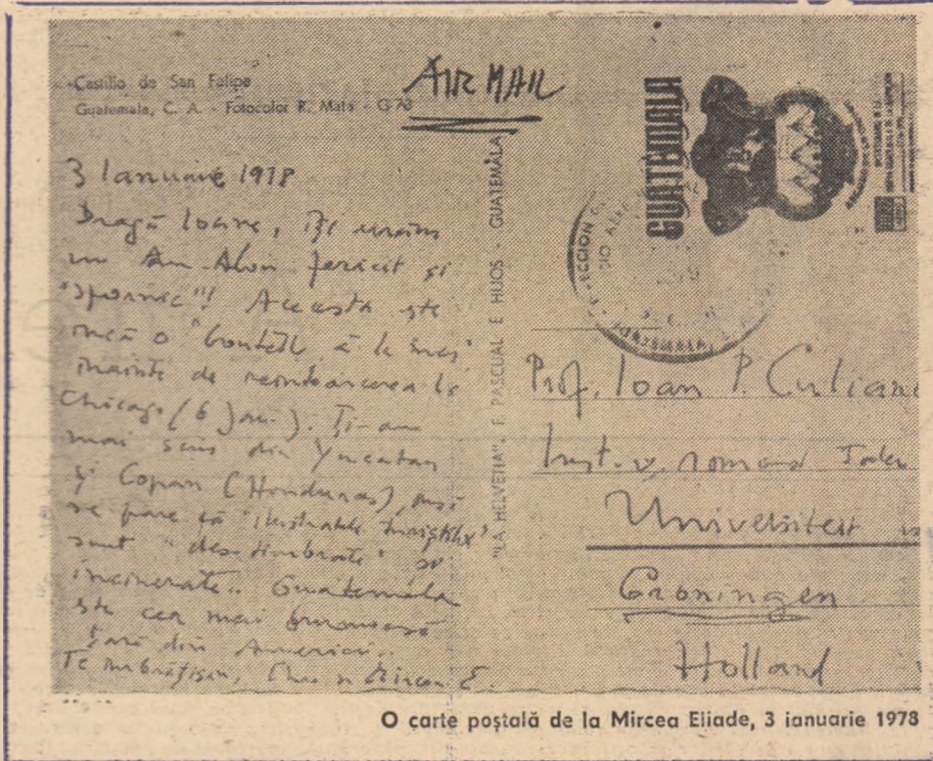 Castillo de San Felipe
Guatemala, C. A. - Fotocolor R. Mata - G 73
AIR MAIL
3 Ianuarie 1978
Dragă Ioane, Îți urăm
un An Nou fericit și
"spornic"!! Aceasta este
încă o
înainte de reîntoarcerea la
Chicago (6 Jan.). Ți-am
mai scris din Yucatan
și Copan (Honduras), însă
se pare că "ilustratele turiștilor"
sunt "destimbrate" și
incinerate.. Guatemala
este cea mai frumoasă
țară din America..
Te îmbrățișăm, Mircea E.
"LA HELVETIA". F. PASCUAL E HIJOS - GUATEMALA
GUATEMALA
Prof. Ioan P. Culianu
Inst. v. romans
Universiteit
Groningen
Holland
O carte poștală de la Mircea Eliade, 3 ianuarie 1978